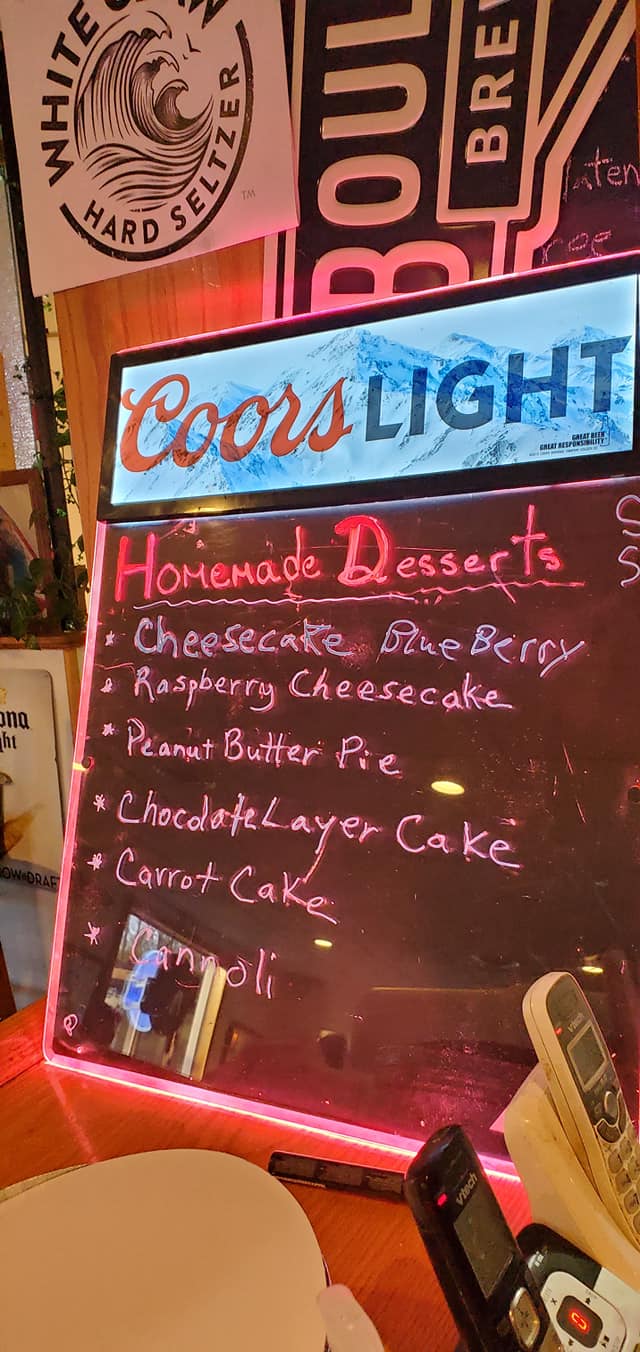 WHITE CLAW
HARD SELTZER
TM
BOUL
BRE
Coors LIGHT
GREAT BEER
GREAT RESPONSIBILITY
Homemade Desserts
* Cheesecake BlueBerry
* Raspberry Cheesecake
* Peanut Butter Pie
* Chocolate Layer Cake
* Carrot Cake
* Cannoli
ona
ght
OW ON DRAF
vtech
vtech